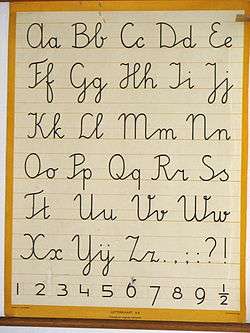 Aa Bb Cc Dd Ee
Ff Gg Hh Ii Jj
Kk Ll Mm Nn
Oo Pp Qq Rr Ss
Tt Uu Vv Ww
Xx Yÿ Zz . , ; : ? !
1 2 3 4 5 6 7 8 9 ½